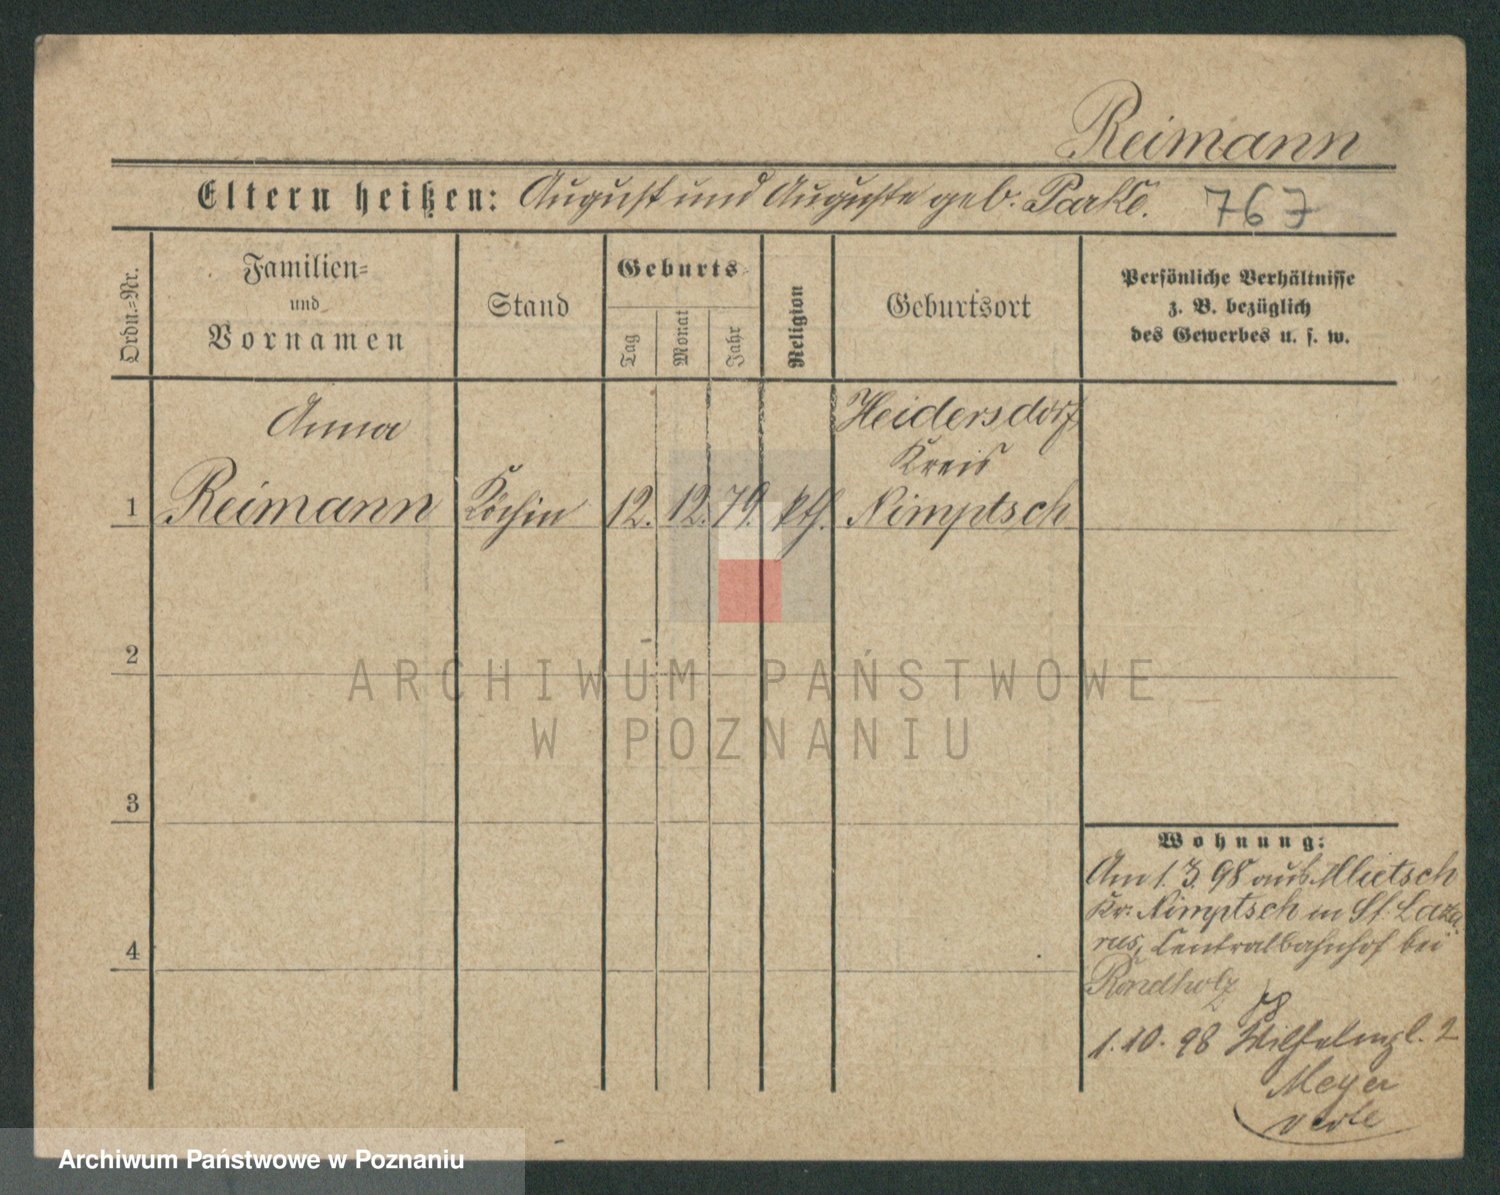 Reimann
Eltern heißen: August und Auguste geb. Parke. 767
Ordn.=Nr.
Familien=
und
Vornamen
Stand
Geburts=
Tag
Monat
Jahr
Religion
Geburtsort
Persönliche Verhältnisse
z. B. bezüglich
des Gewerbes u. s. w.
Anna
1 Reimann Köchin 12. 12. 79. kth.
Heidersdorf
Kreis
Nimptsch
2
3
4
ARCHIWUM PAŃSTWOWE
W POZNANIU
Wohnung:
Am 1. 3. 98 aus
Kr. Nimptsch in St. Laza
rus, Centralbahnhof bei
Rondholz
1. 10. 98 Wilhelmpl. 2
Meyer
Archiwum Państwowe w Poznaniu